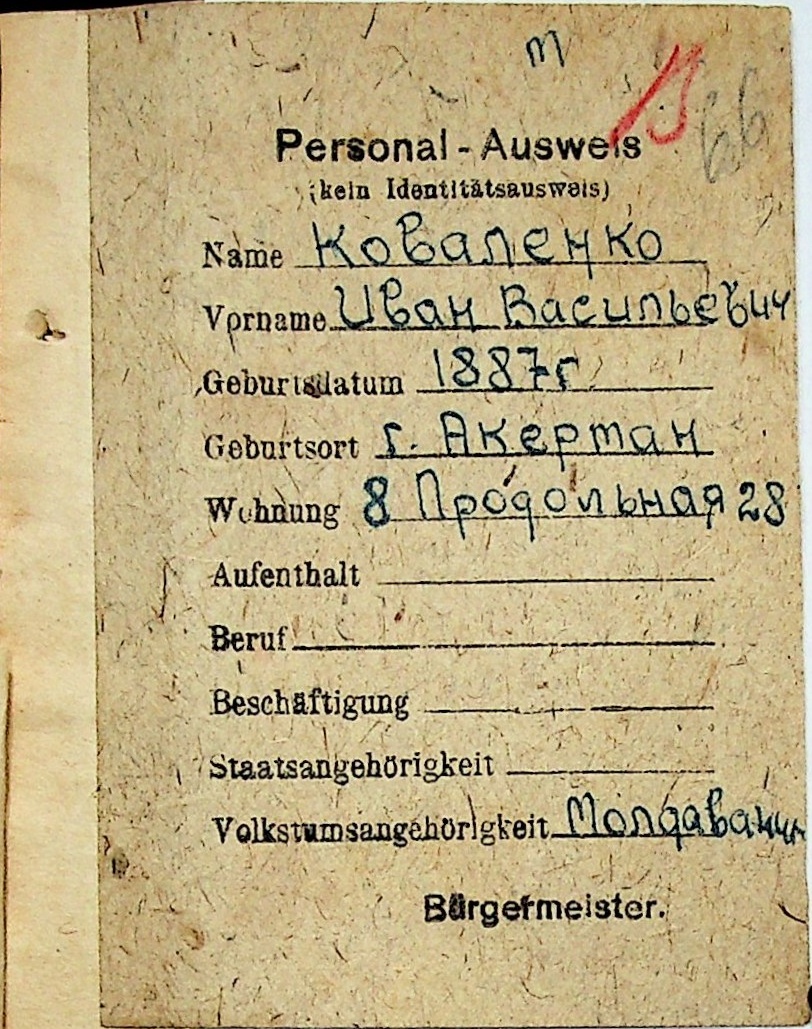 м
13 66
Personal - Ausweis
(kein Identitätsausweis)
Name Коваленко
Vorname Иван Васильевич
Geburtsdatum 1887г
Geburtsort г. Акерман
Wohnung 8 Продольная 28
Aufenthalt
Beruf
Beschäftigung
Staatsangehörigkeit
Volkstumsangehörigkeit Молдаванин
Bürgermeister.